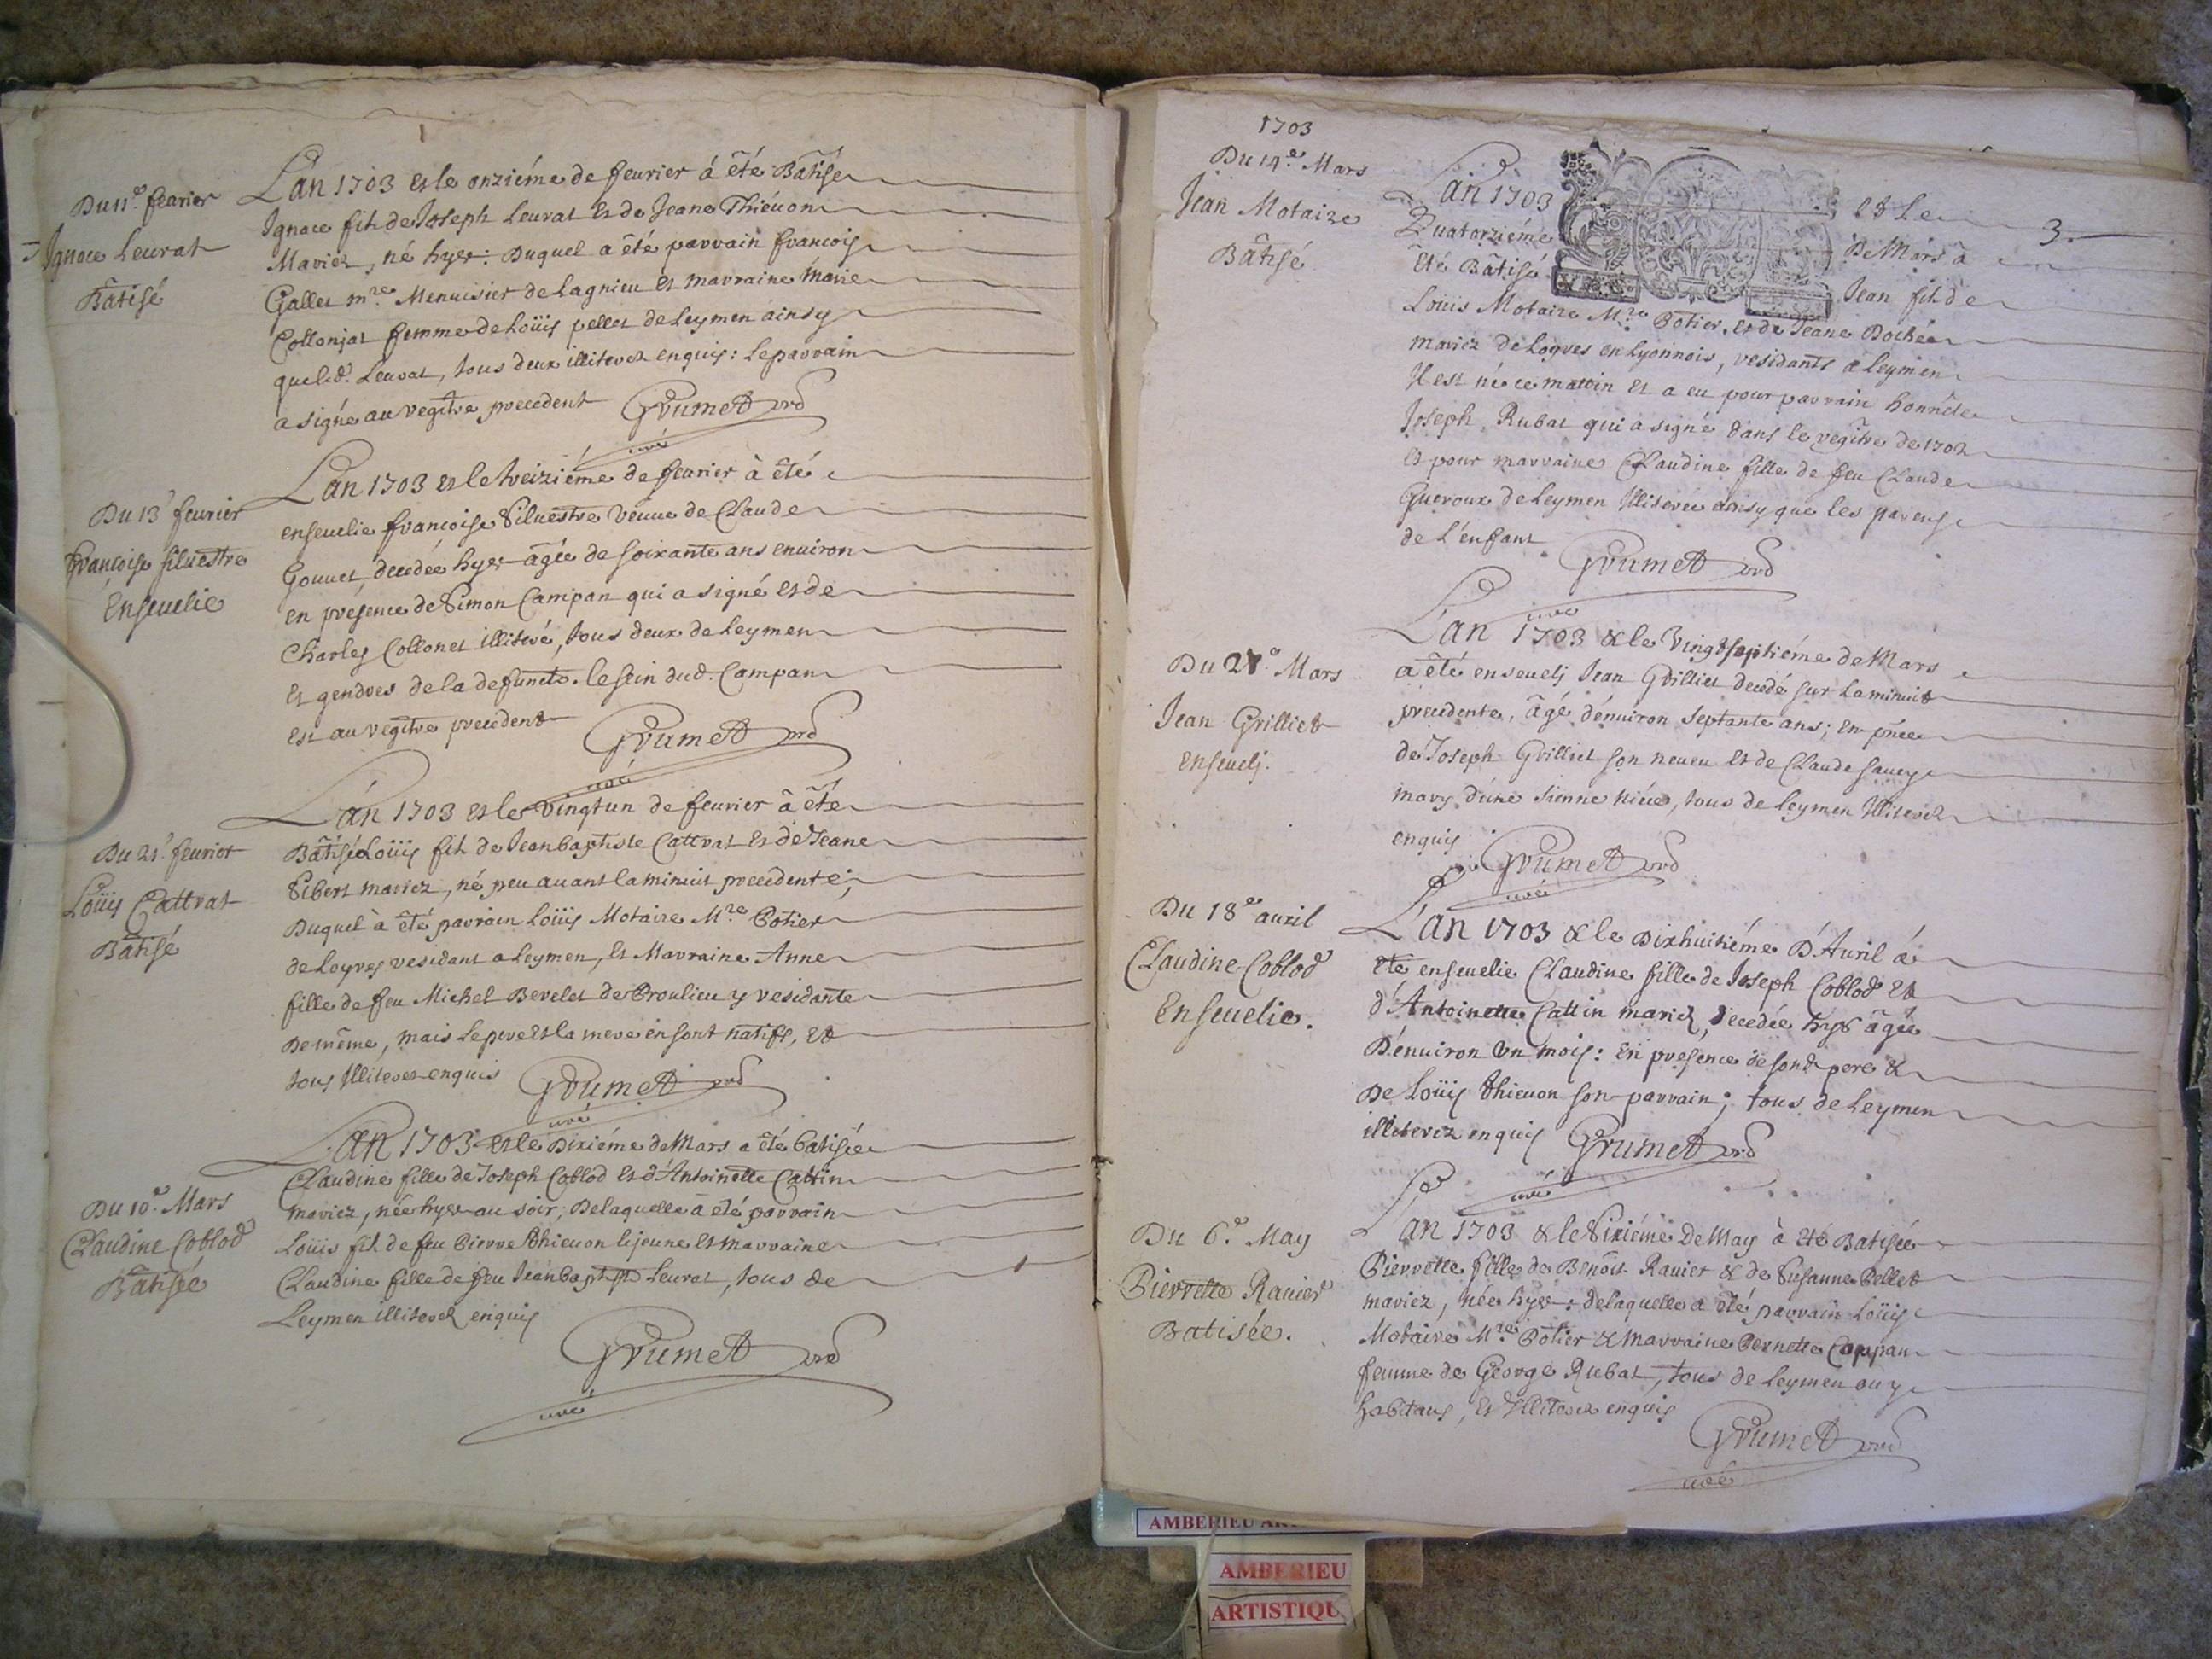 Du 11e. fevrier
Ignace Leurat
Bãtisé
L'an 1703 et le onziéme de feurier á ẽté Bãtisé
Ignace fils de Joseph Leurat et de Jeane Thieuon
Mariez, né hyer: Duquel a ẽté parrain francois
Gallet mre Menuisier de Lagnieu et marraine Marie
Collonjat femme de Loüis pellet de Leymen áinsy
que led. Leurat, tous deux illiterez enquis: le parrain
a signé au regitre precedent Grumet prd
curé
Du 13e feurier
francoise siluestre
Enseuelie
L'an 1703 et le treiziéme de feurier à ẽté
enseuelie francoise Siluestre veuue de Claude
Gouuet, decedée hyer âgée de soixante ans enuiron
en presence de Simon Campan qui a signé et de
Charles Collonet illiteré, tous deux de Leymen
et gendres de la defuncte. le sein dud. Campan
est au regitre precedent Grumet prd
curé
Du 21e. feurier
Loüis Cattrat
Bãtisé
L'án 1703 et le vingtun de feurier à ẽté
Bãtisé Loüis fils de Jean baptiste Cattrat et de Jeane
Sibert mariez, né peu auant la minuit precedente;
Duquel à ẽté parrain Loüis Motaire Mre Potier
de Loyres residant a Leymen, et Marraine Anne
fille de feu Michel Bevelet de Proulieu y residante
De même, mais le pere et la mere en sont natifs, et
tous illiterez enquis Grumet prd
curé
Du 10e. Mars
Claudine Coblod
Bãtisée
L'an 1703 et le Dixiéme de Mars a ẽté batisée
Claudine fille de Joseph Coblod et d'Antoinette Cattin
mariez, née hyer au soir; De laquelle a ẽté parrain
Loüis fils de feu Pierre thieuon le jeune et marraine
Claudine fille de feu Jean baptiste Leurat, tous de
Leymen illiterez enquis
Grumet prd
curé
1703
Du 14e. Mars
Jean Motaire
Bãtisé
L'an 1703 et le 3.
Quatorziéme De Mars à
ẽté Bãtisé Jean fils de
Louis Motaire Mre Potier, et de Jeane Bochée
mariez de Loyres en Lyonnois, residants à Leymen
Il est né ce mattin et a eu pour parrain honnête
Joseph Rubat qui a signé dans le regitre de 1702
et pour marraine Claudine fille de feu Claude
Gueroux de Leymen illiterée ainsy que les parens
de l'enfant Grumet prd
curé
Du 27e. Mars
Jean Grilliet
enseuelj.
L'an 1703 & le vingtseptiéme de Mars
a êté enseuelj Jean Grilliet decedé sur la minuit
precedente, âgé d'enuiron septante ans; en pñce
de Joseph Grilliet son neueu et de Claude sauey
mary d'une sienne niéce, tous de Leymen illiterez
enquis Grumet prd
curé
Du 18e auril
Claudine Coblod
Enseuelie.
L'an 1703 & le Dixhuitiéme D'Auril á
eté enseuelie Claudine fille de Joseph Coblod et
d'Antoinette Cattin mariez, decedée hyer âgée
D'enuiron un mois: En presence de sond pere &
De Loüis thieuon son parrain; tous de Leymen
illiterez enquis Grumet prd
curé
Du 6e. May
Pierrette Rauier
Batisée.
L'an 1703 & le Sixiéme De May à eté Batisée
Pierrette fille de Benôit Rauier & de Susanne Pellet
mariez, née hyer: de laquelle a ẽté parrain Loüis
Motaire Mre Potier & marraine Pernette Campan
femme de George Rubat, tous de Leymen ou y
habitans, et illiterez enquis
Grumet prd
curé
AMBERIEU
AMBERIEU
ARTISTIQU